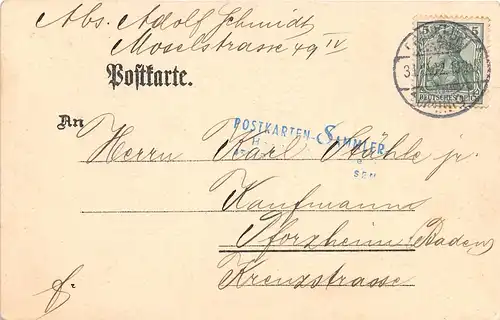 Abs. Adolf Schmidt
Moselstrasse 49 IV
Postkarte.
An
POSTKARTEN-SAMMLER
Herrn Karl Stähle jr.
Kaufmann
Pforzheim (Baden)
Kreuzstrasse
DEUTSCHES REICH
5